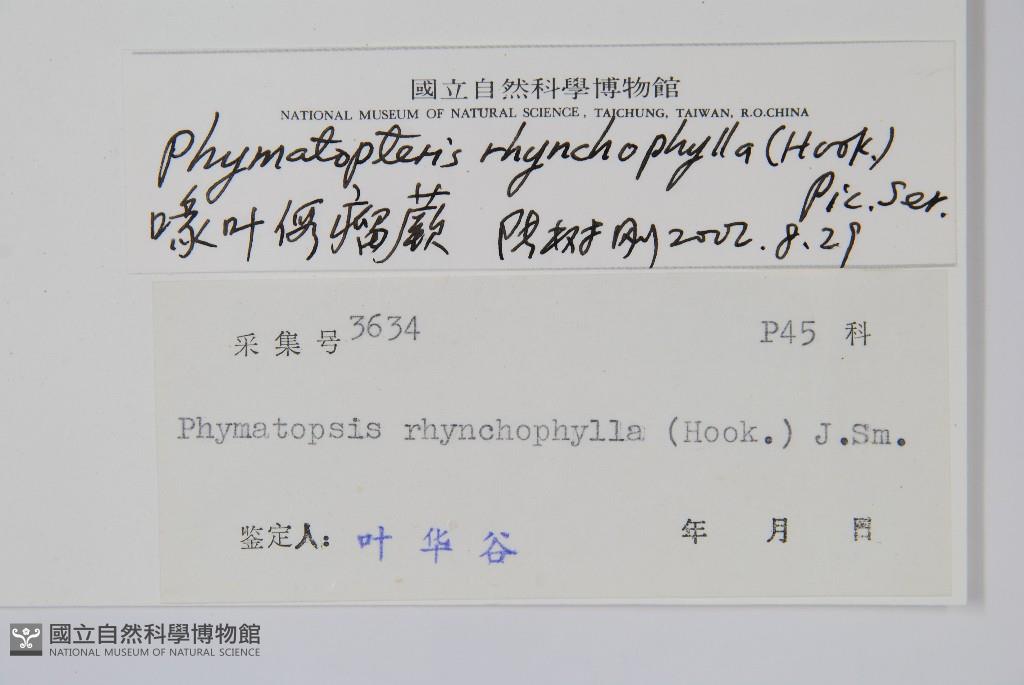 國立自然科學博物館
NATIONAL MUSEUM OF NATURAL SCIENCE, TAICHUNG, TAIWAN, R.O.CHINA
Phymatopteris rhynchophylla (Hook.)
Pic. Ser.
喙叶假瘤蕨 陽树刚 2002.8.29
采集号 3634 P45 科
Phymatopsis rhynchophylla (Hook.) J.Sm.
鉴定人: 叶华谷 年 月 日
國立自然科學博物館
NATIONAL MUSEUM OF NATURAL SCIENCE